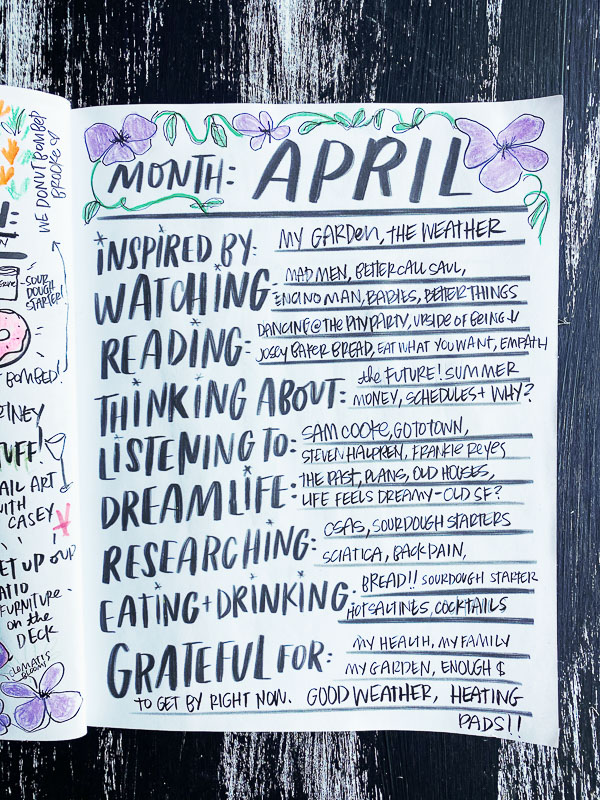 MONTH: APRIL
INSPIRED BY: MY GARDEN, THE WEATHER
WATCHING: MAD MEN, BETTER CALL SAUL,
ENCINO MAN, BABIES, BETTER THINGS
READING: DANCING @ THE PITY PARTY, UPSIDE OF BEING ↓
JOSEY BAKER BREAD, EAT WHAT YOU WANT, EMPATH
THINKING ABOUT: the FUTURE! SUMMER
MONEY, SCHEDULES + WHY?
LISTENING TO: SAM COOKE, GO TO TOWN,
STEVEN HALPREN, FRANKIE REYES
DREAM LIFE: THE PAST, PLANS, OLD HOUSES,
LIFE FEELS DREAMY - OLD SF?
RESEARCHING: OSAS, SOURDOUGH STARTERS
SCIATICA, BACK PAIN,
EATING + DRINKING: BREAD!! SOURDOUGH STARTER
HOT SALTINES, COCKTAILS
GRATEFUL FOR: MY HEALTH, MY FAMILY
MY GARDEN, ENOUGH $
TO GET BY RIGHT NOW. GOOD WEATHER, HEATING
PADS!!
WE DONUT BOMBED
BROOKE
SOUR
DOUGH
STARTER!
BOMBED!
CASEY
FURNITURE
on the
DECK
CLEMATIS
BLOOMS